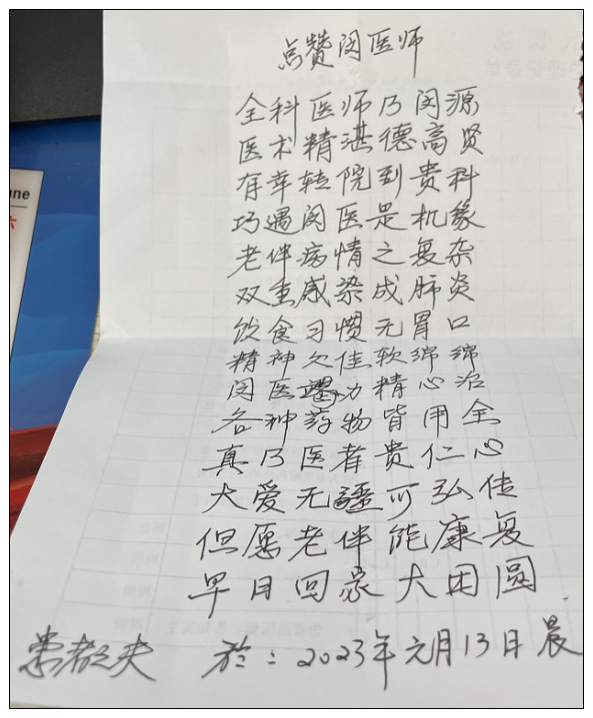 点赞闵医师
全科医师乃闵源
医术精湛德高贤
有幸转院到贵科
巧遇闵医是机缘
老伴病情之复杂
双重感染成肺炎
饮食习惯无胃口
精神欠佳软绵绵
闵医竭力精心治
各种药物皆用全
真乃医者贵仁心
大爱无疆可弘传
但愿老伴能康复
早日回家大团圆
患者之夫 於：2023年元月13日晨
une